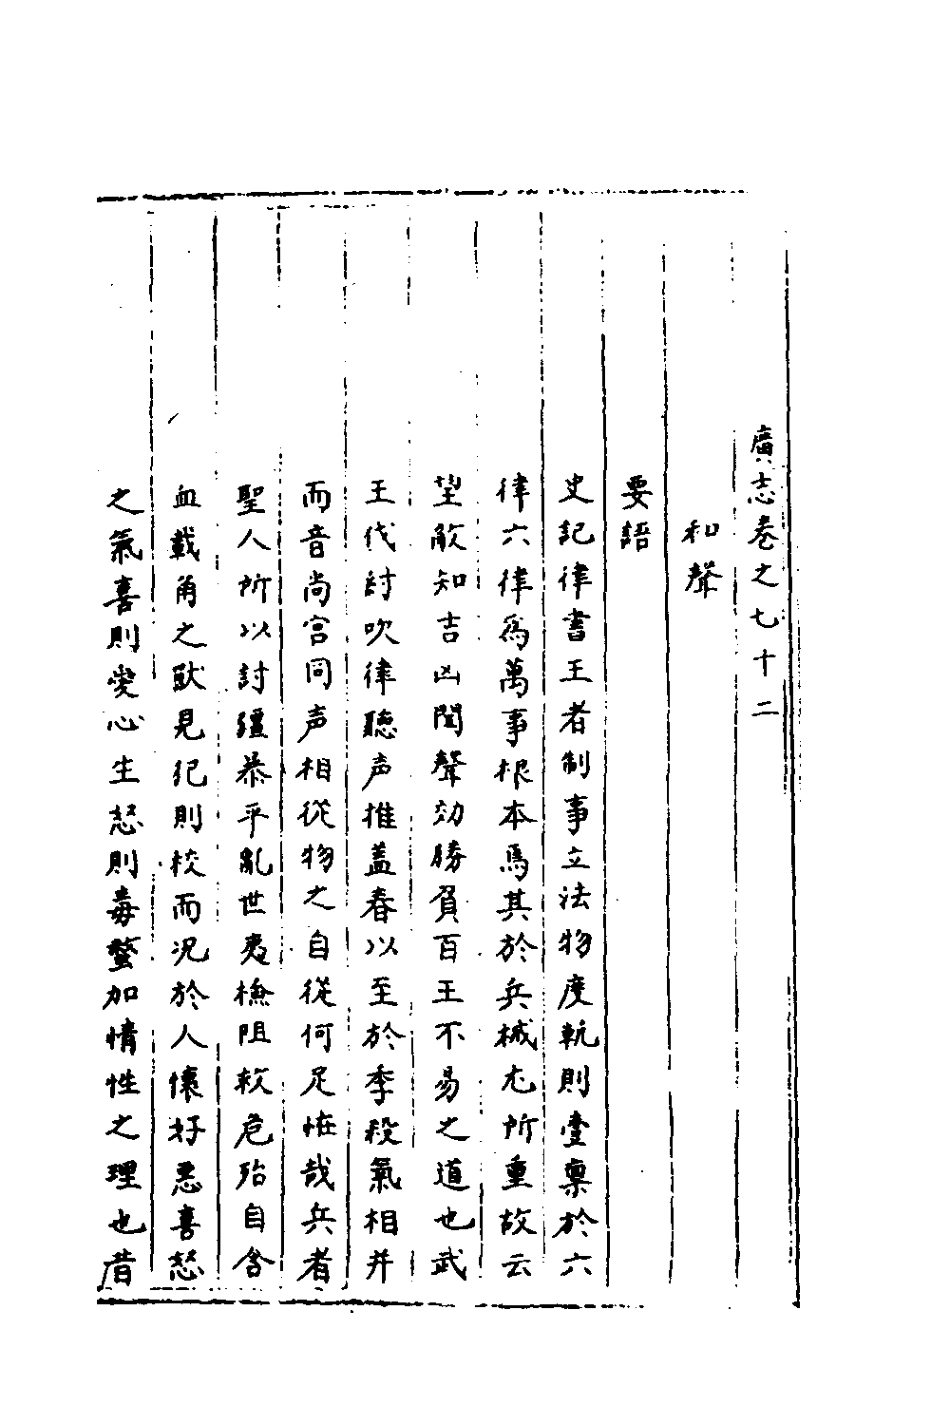 廣志卷之七十二
和聲
要語
史記律書王者制事立法物度軌則壹禀於六
律六律爲萬事根本焉其於兵械尢所重故云
望敵知吉凶聞聲効勝負百王不易之道也武
王伐討吹律聽声推孟春以至於季殺氣相并
而音尚宮同声相從物之自從何足恠哉兵者
聖人所以討彊暴平亂世夷檢阻救危殆自含
血載角之獸見犯則校而况於人懷好悪喜怒
之氣喜則愛心生怒則毒螫加情性之理也昔